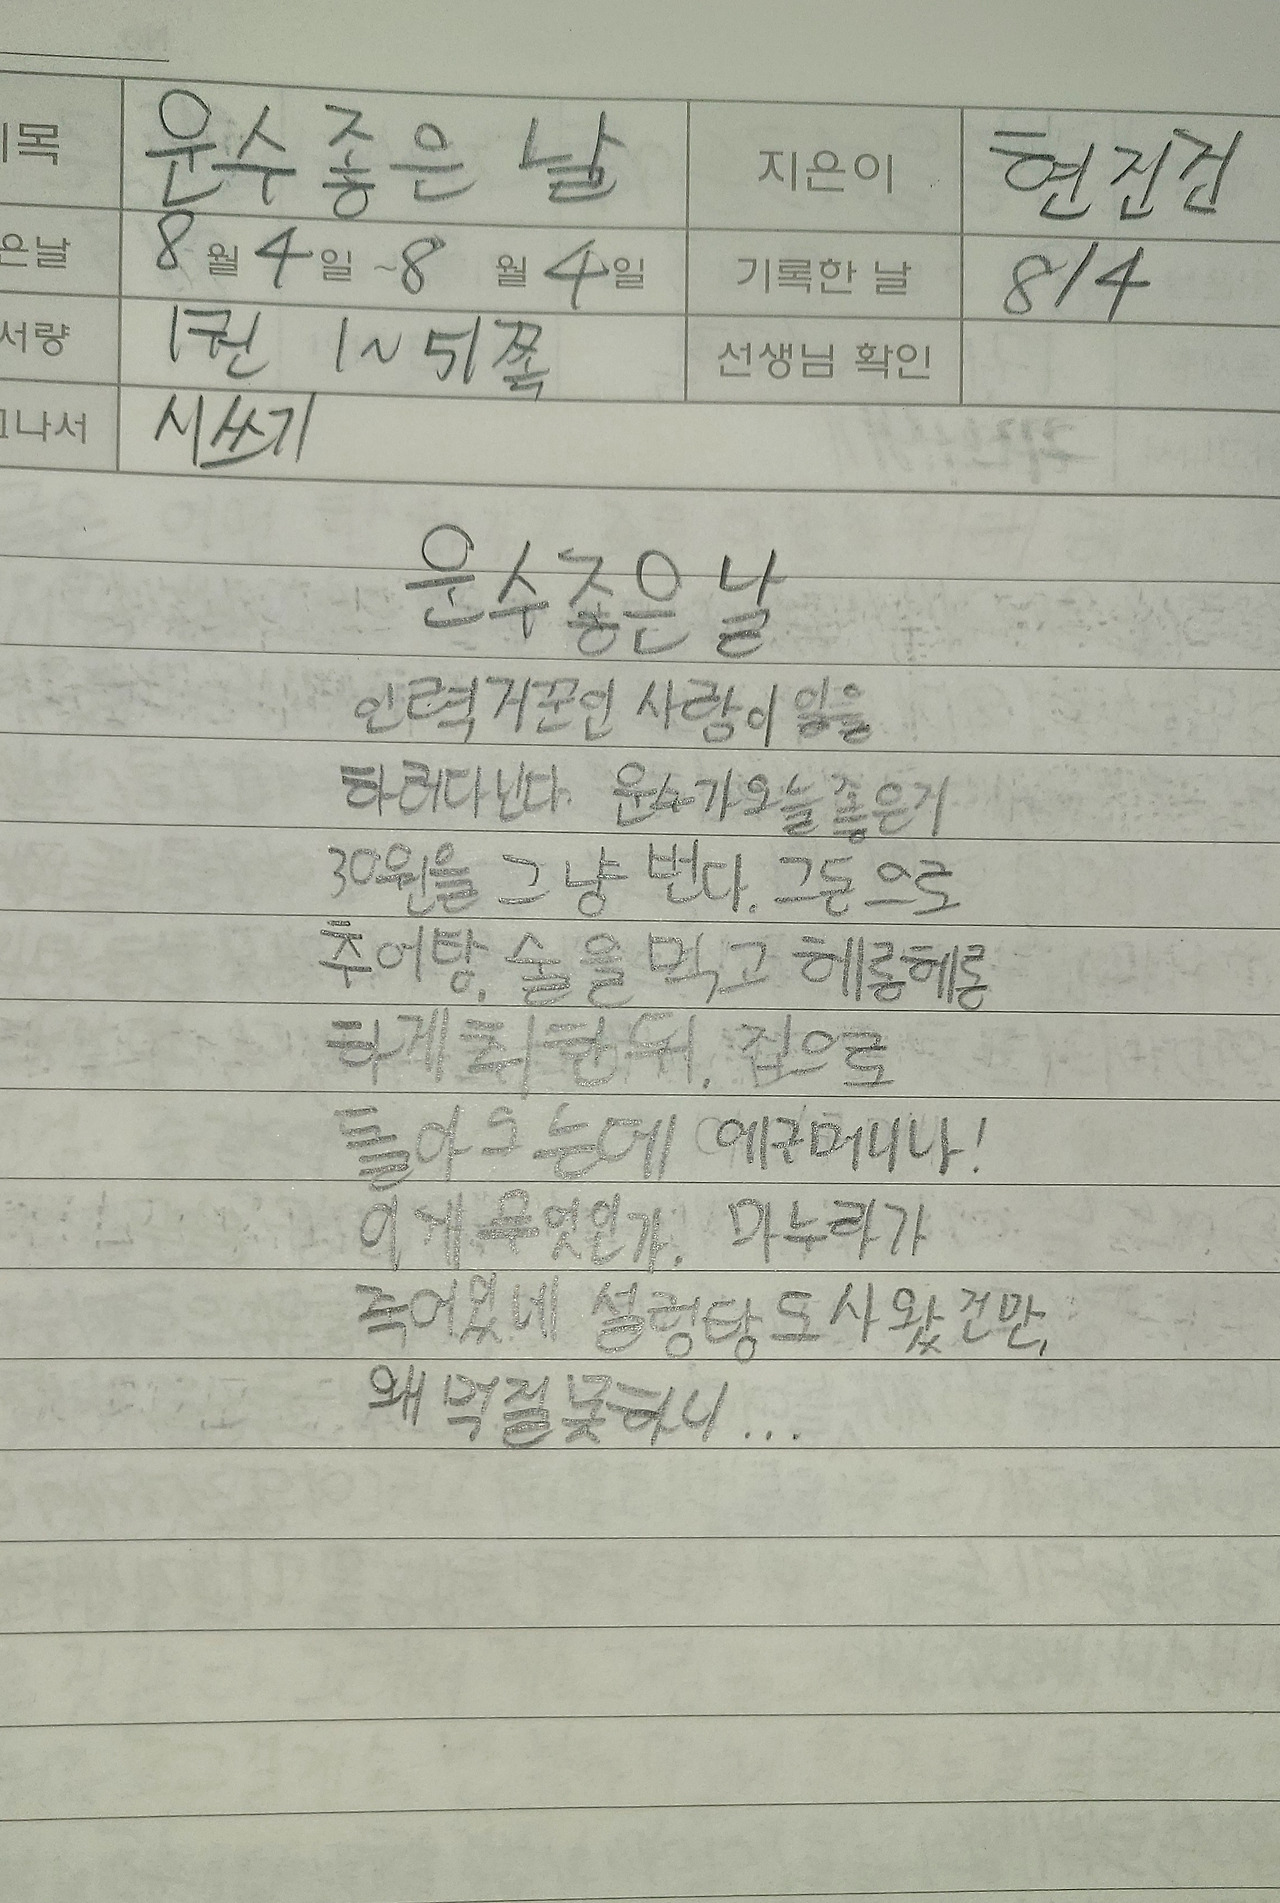 목 운수 좋은 날 지은이 현진건
은날 8월 4일 ~8 월 4일 기록한 날 8/4
서량 1권 1~51쪽 선생님 확인
나서 시쓰기
운수좋은 날
인력거꾼인 사람이 일을
하러다닌다. 운수가오늘좋은지
30원을 그냥 번다. 그돈으로
추어탕, 술을 먹고 헤롱헤롱
하게취한뒤, 집으로
돌아오는데 에구머니나!
이게무엇인가. 마누라가
죽어있네 설렁탕도사왔건만,
왜 먹질못하니...